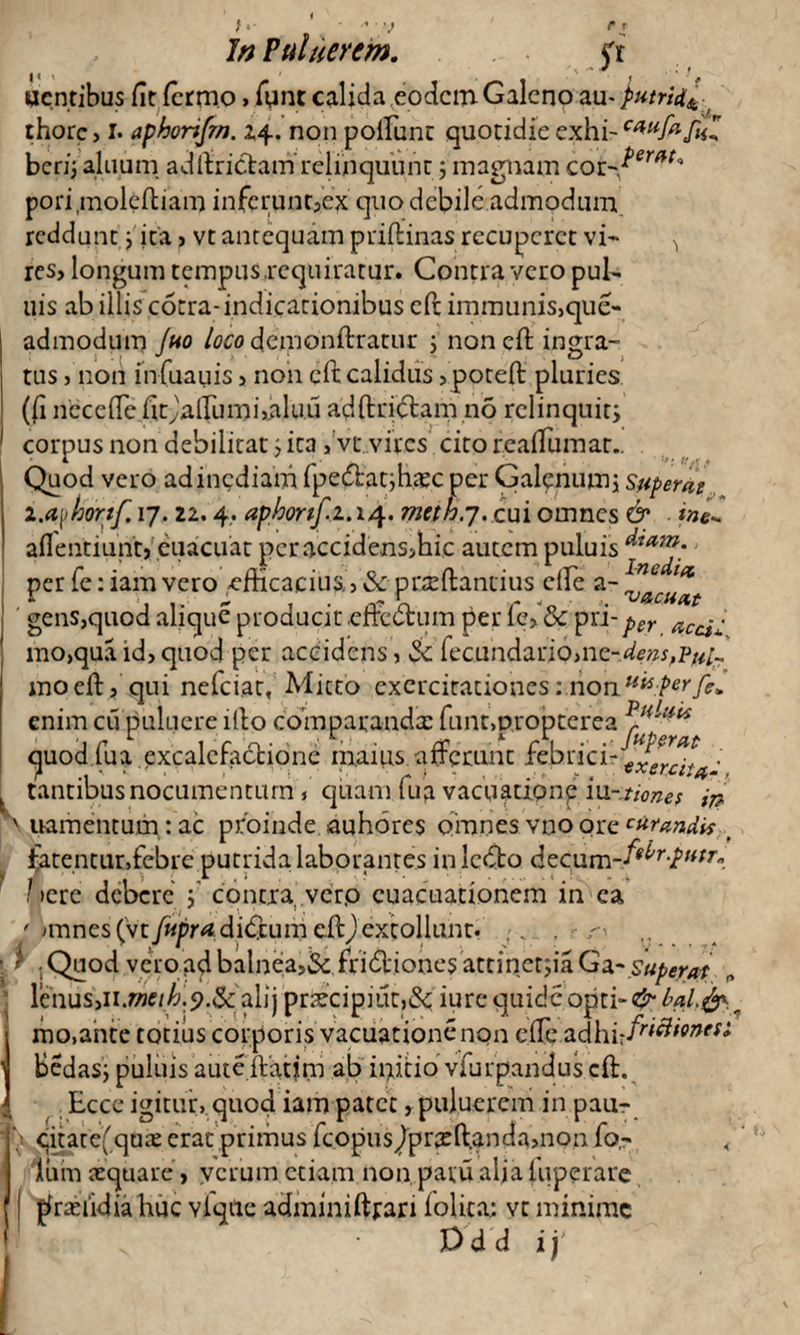 In Puluerem. 51
uentibus fit sermo, sunt calida eodem Galeno au- putridæ
thore, 1. aphorism. 24. non possunt quotidie exhi- causa su-
beri; aluum adstrictam relinquunt; magnam cor- perat.
pori molestiam inferunt, ex quo debilé admodum
reddunt; ita, vt antequam pristinas recuperet vi-
res, longum tempus requiratur. Contra vero pul-
uis ab illis cótra-indicationibus est immunis, qué-
admodum suo loco demonstratur; non est ingra-
tus, non insuauis, non est calidus, potest pluries
(si necesse sit) assumi, aluū adstrictam nō relinquit;
corpus non debilitat; ita, vt vires cito reassumat.
Quod vero ad inediam spectat; hæc per Galenum; Superat
2. aphoris. 17. 22. 4. aphoris. 2. 14. meth. 7. cui omnes & ine-
assentiunt, euacuat per accidens, hic autem puluis diam.
per se: iam vero efficacius, & præstantius esse a- Inedia vacuat
gens, quod aliquē producit effectum per se, & pri- per acci-
mo, quā id, quod per accidens, & secundario, ne- dens, Pul-
mo est, qui nesciat. Mitto exercitationes: non uis per se.
enim cū puluere isto comparandæ sunt, propterea Puluis
quod sua excalefactione maius afferunt febrici- superat exercita-
tantibus nocumentum, quam sua vacuatione iu- tiones in
uamentum: ac proinde auhôres omnes vno ore curandis
fatentur, febre putrida laborantes in lecto decum- febr. putr.
bere debere; contra vero euacuationem in ea
omnes (vt supra dictum est) extollunt.
Quod vero ad balnea, & frictiones attinet; iā Ga- Superat
lenus, 11. meth. 9. & alij præcipiūt, & iure quidē opti- & bal. &
mo, ante totius corporis vacuationē non esse adhi- frictiones:
bēdas; puluis autē statim ab initio vsurpandus est.
Ecce igitur, quod iam patet, puluerem in pau-
citate (quæ erat primus scopus) præstanda, non so-
lum æquare, verum etiam non parū alia superare
præsidia huc vsque administrari solita: vt minime
Ddd ij